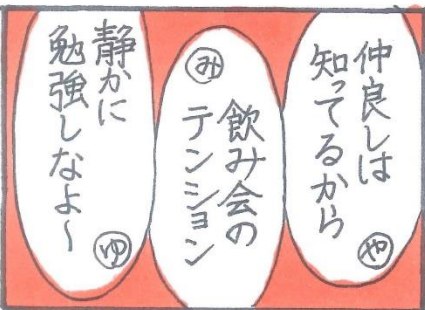 仲良しは
知ってるから
や
み
飲み会の
テンション
静かに
勉強しなよ〜
ゆ